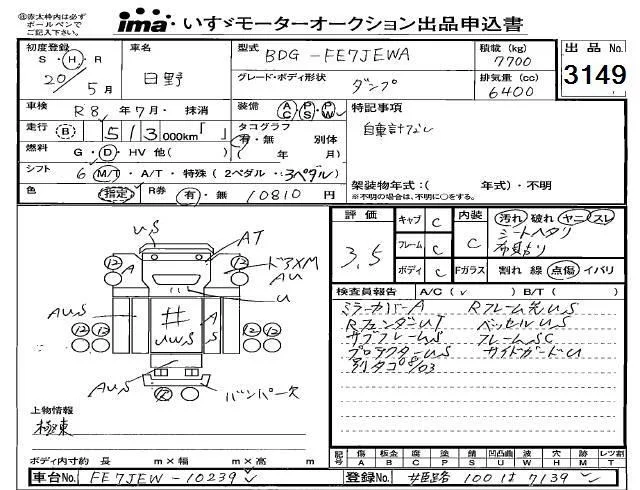 ㊟赤太枠内は必ず
ボールペンで
ご記入下さい。
ima いすゞモーターオークション出品申込書
初度登録
S・H・R
20年5月
車名
日野
型式
BDG-FE7JEWA
グレード・ボディ形状
ダンプ
積載(kg)
7700
排気量(cc)
6400
出品No.
3149
車検 R8年7月・抹消
走行 B 513000km「 」
燃料 G・D・HV 他( )
シフト 6 M/T・A/T・特殊(2ペダル・3ペダル)
色 指定 R券 有・無 10810円
装備 AC PS PW
タコグラフ
有・無 別体
( 年 月)
特記事項
自乗計なし
架装物年式:( 年式)・不明
※不明の場合は、不明に○をする。
評価
3.5
キャブ C
フレーム C
ボディ C
内装 C
汚れ 破れ ヤニ スレ
シートヘタリ
Fガラス 割れ 線 点傷 イバリ
検査員報告 A/C( ✓ ) B/T( )
ミラーカバーA Rフレーム先US
RフェンダーUT ベッセルUS
サブフレームS フレームSC
プロテクターUS サイドガードU
別タコ08/03
US
AT
12 A 12
ドアXM
AU
U
AUS
#
UWS
A
S
AUS
バンパー欠
上物情報
極東
ボディ内寸約 長 m×幅 m×高 m
記号 傷A 板金B 腐C 塗P 錆S 凹凸曲U 波W 穴H 跡M レツ割T
車台No. FE7JEW-10239
登録No. 100 は 7139